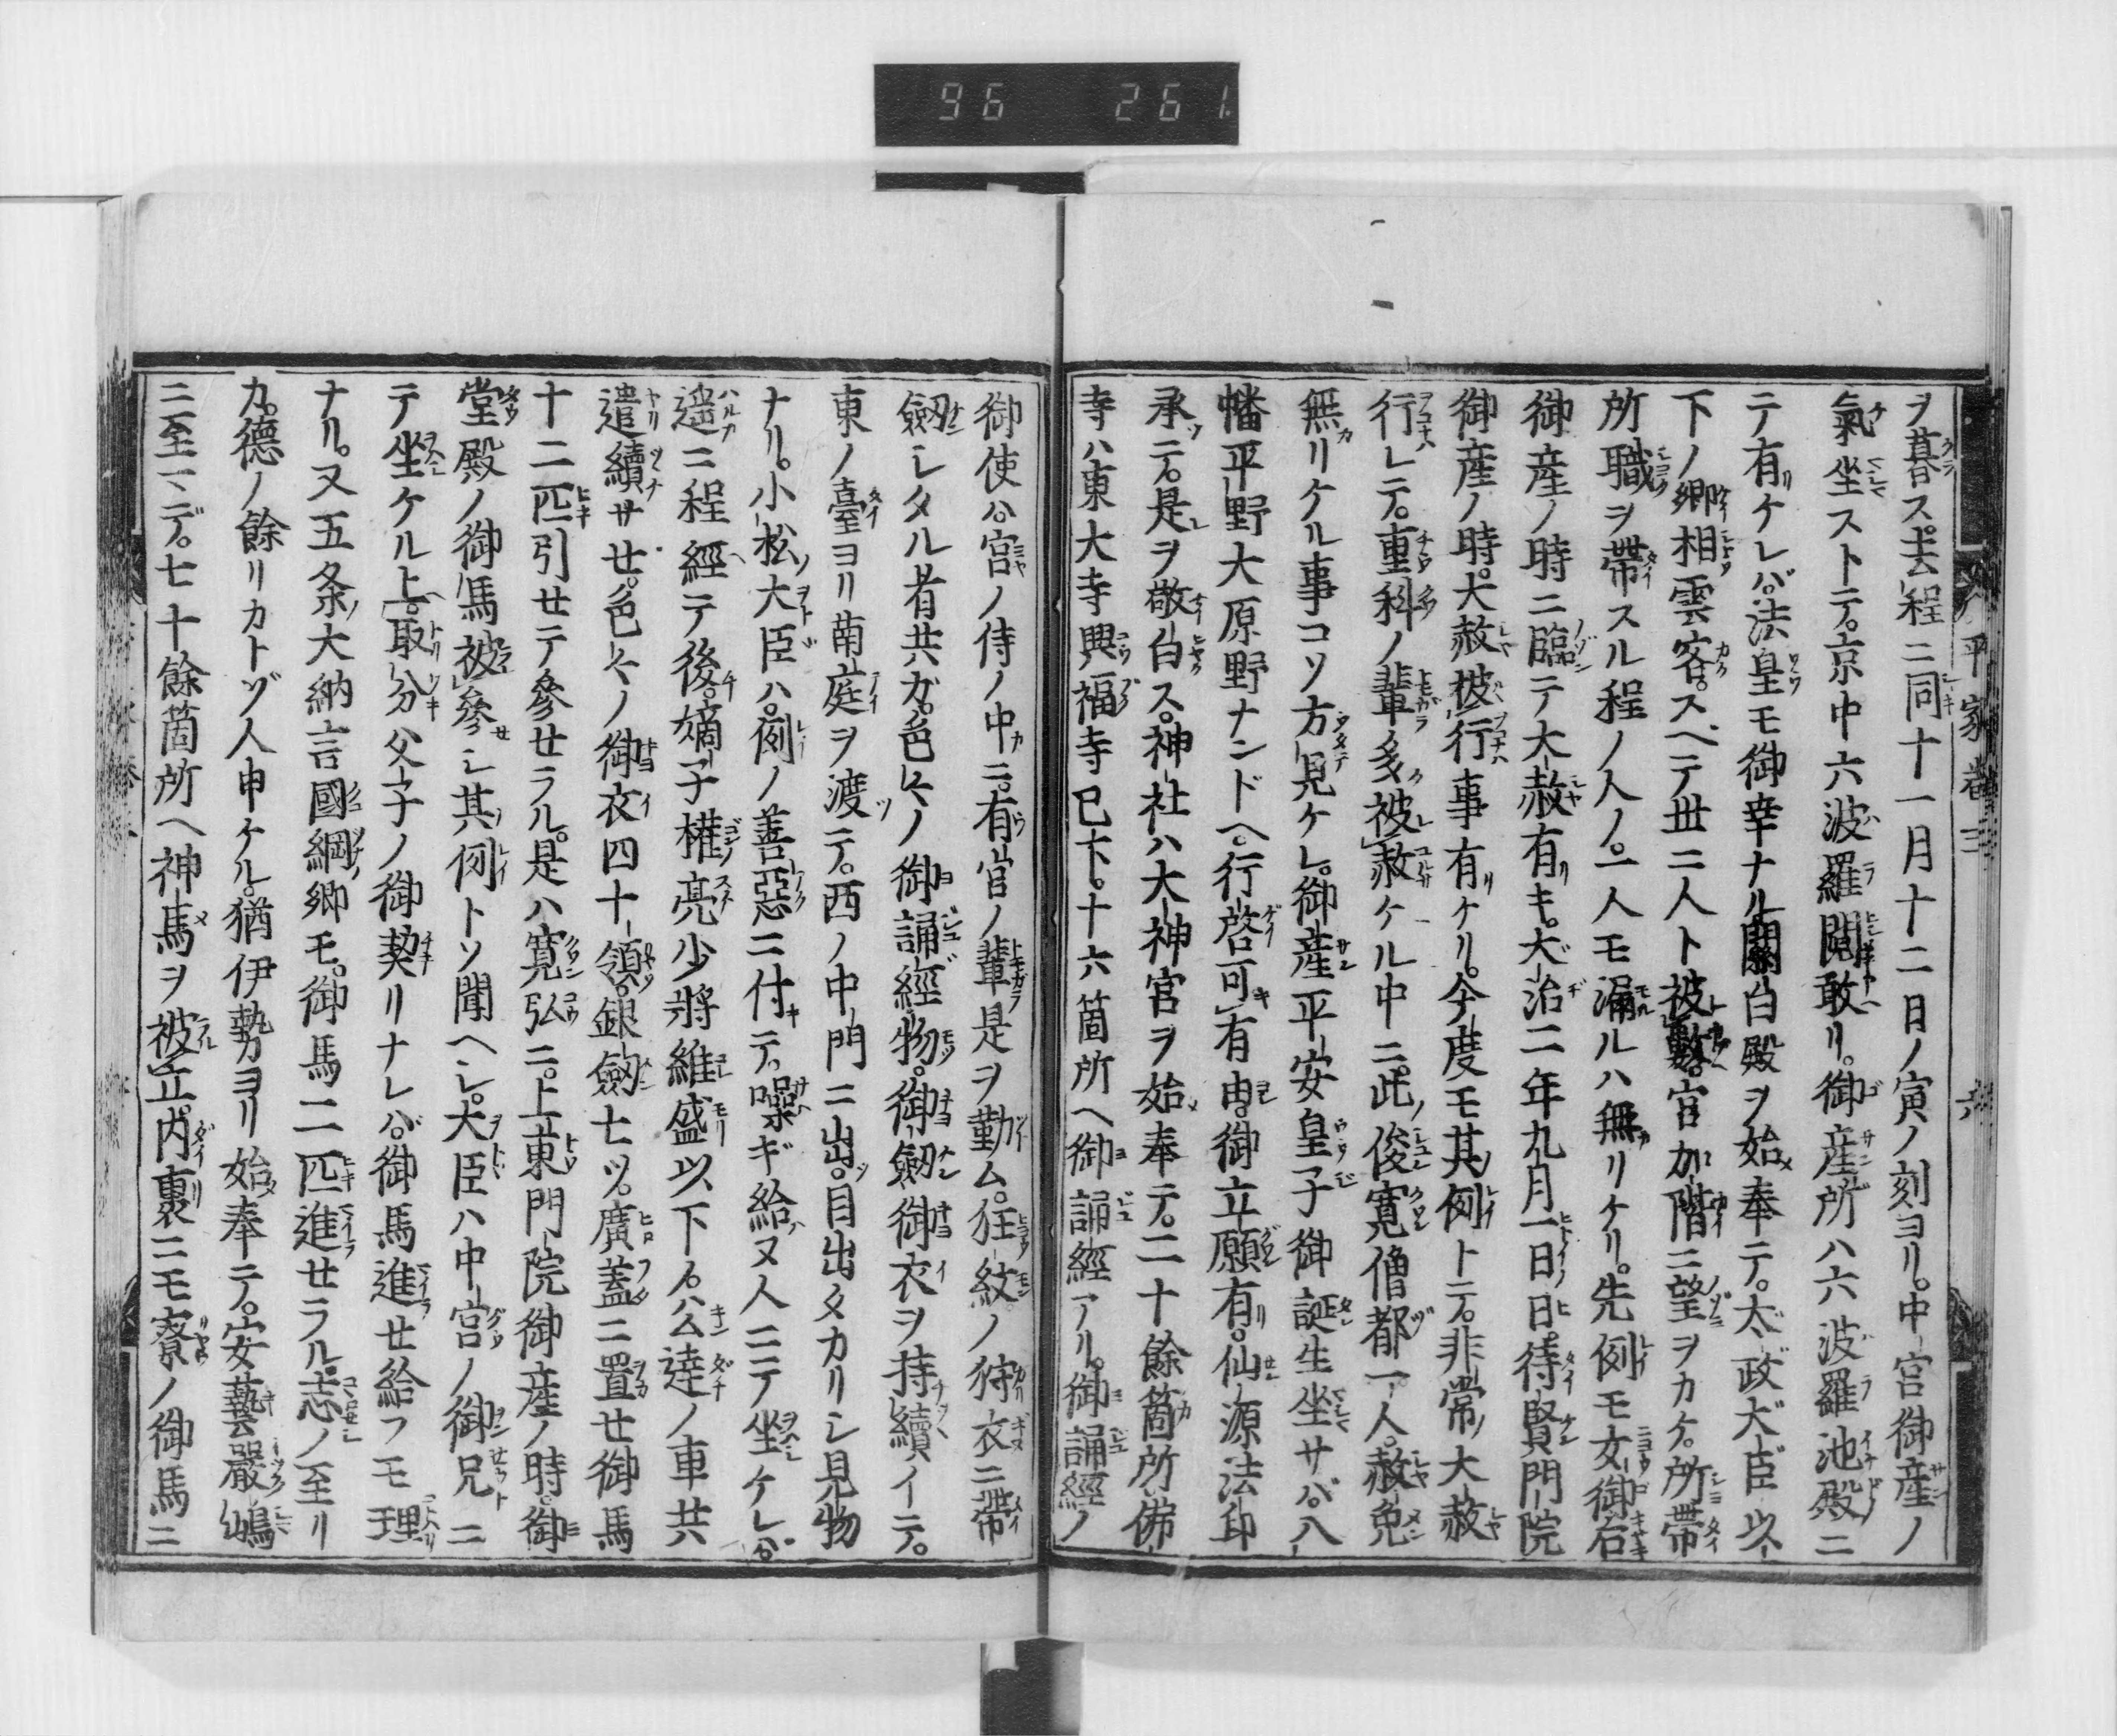 96 261
平家卷三 六
ヲ暮ス。去程ニ同十一月十二日ノ寅ノ刻ヨリ。中宮御産ノ
氣坐ストテ。京中六波羅閧敢リ。御産所ハ六波羅池殿ニ
テ有ケレバ。法皇モ御幸ナル關白殿ヲ始奉テ。太政大臣以
下ノ卿相雲客。スベテ世ニ人ト被數。官加階ニ望ヲカケ。所帶
所職ヲ帶スル程ノ人ノ。一人モ漏ルハ無リケリ。先例モ女御后
御産ノ時ニ臨テ大赦有キ。大治二年九月一日日待賢門院
御産ノ時。大赦被行事有ケリ。今度モ其例トテ。非常ノ大赦
行レテ。重科ノ輩多被赦ケル中ニ。此俊寛僧都一人。赦免
無リケル事コソ方見ケレ。御産平安皇子御誕生坐サバ。八
幡平野大原野ナンドヘ。行啓可有由。御立願有。仙源法印
承テ。是ヲ敬白ス。神社ハ大神官ヲ始奉テ。二十餘箇所。佛
寺ハ東大寺興福寺已下。十六箇所ヘ御誦經アリ。御誦經ノ
御使ハ。宮ノ侍ノ中ニ。有官ノ輩是ヲ勤ム。狂紋ノ狩衣ニ帶
劔シタル者共ガ。色々ノ御誦經物。御劔御衣ヲ持續イテ。
東ノ臺ヨリ南庭ヲ渡テ。西ノ中門ニ出。目出タカリシ見物
ナリ。小松ノ大臣ハ。例ノ善惡ニ付テ。噪ギ給ハヌ人ニテ坐ケレバ。
遥ニ程經テ後。嫡子權亮少將維盛以下ノ公達ノ車共
遣續サセ。色々ノ御衣四十領。銀劔七ツ。廣蓋ニ置セ御馬
十二匹引セテ參セラル。是ハ寛弘ニ。上東門院御産ノ時。御
堂殿ノ御馬被參シ其例トソ聞ヘシ。大臣ハ中宮ノ御兄ニ
テ坐ケル上。取分父子ノ御契リナレバ。御馬進セ給フモ理
ナリ。又五条ノ大納言國綱ノ卿モ。御馬二匹進セラル。志ノ至リ
カ。德ノ餘リカトゾ人申ケル。猶伊勢ヨリ始奉テ。安藝嚴嶋
ニ至マデ。七十餘箇所ヘ神馬ヲ被立。内裏ニモ寮ノ御馬ニ